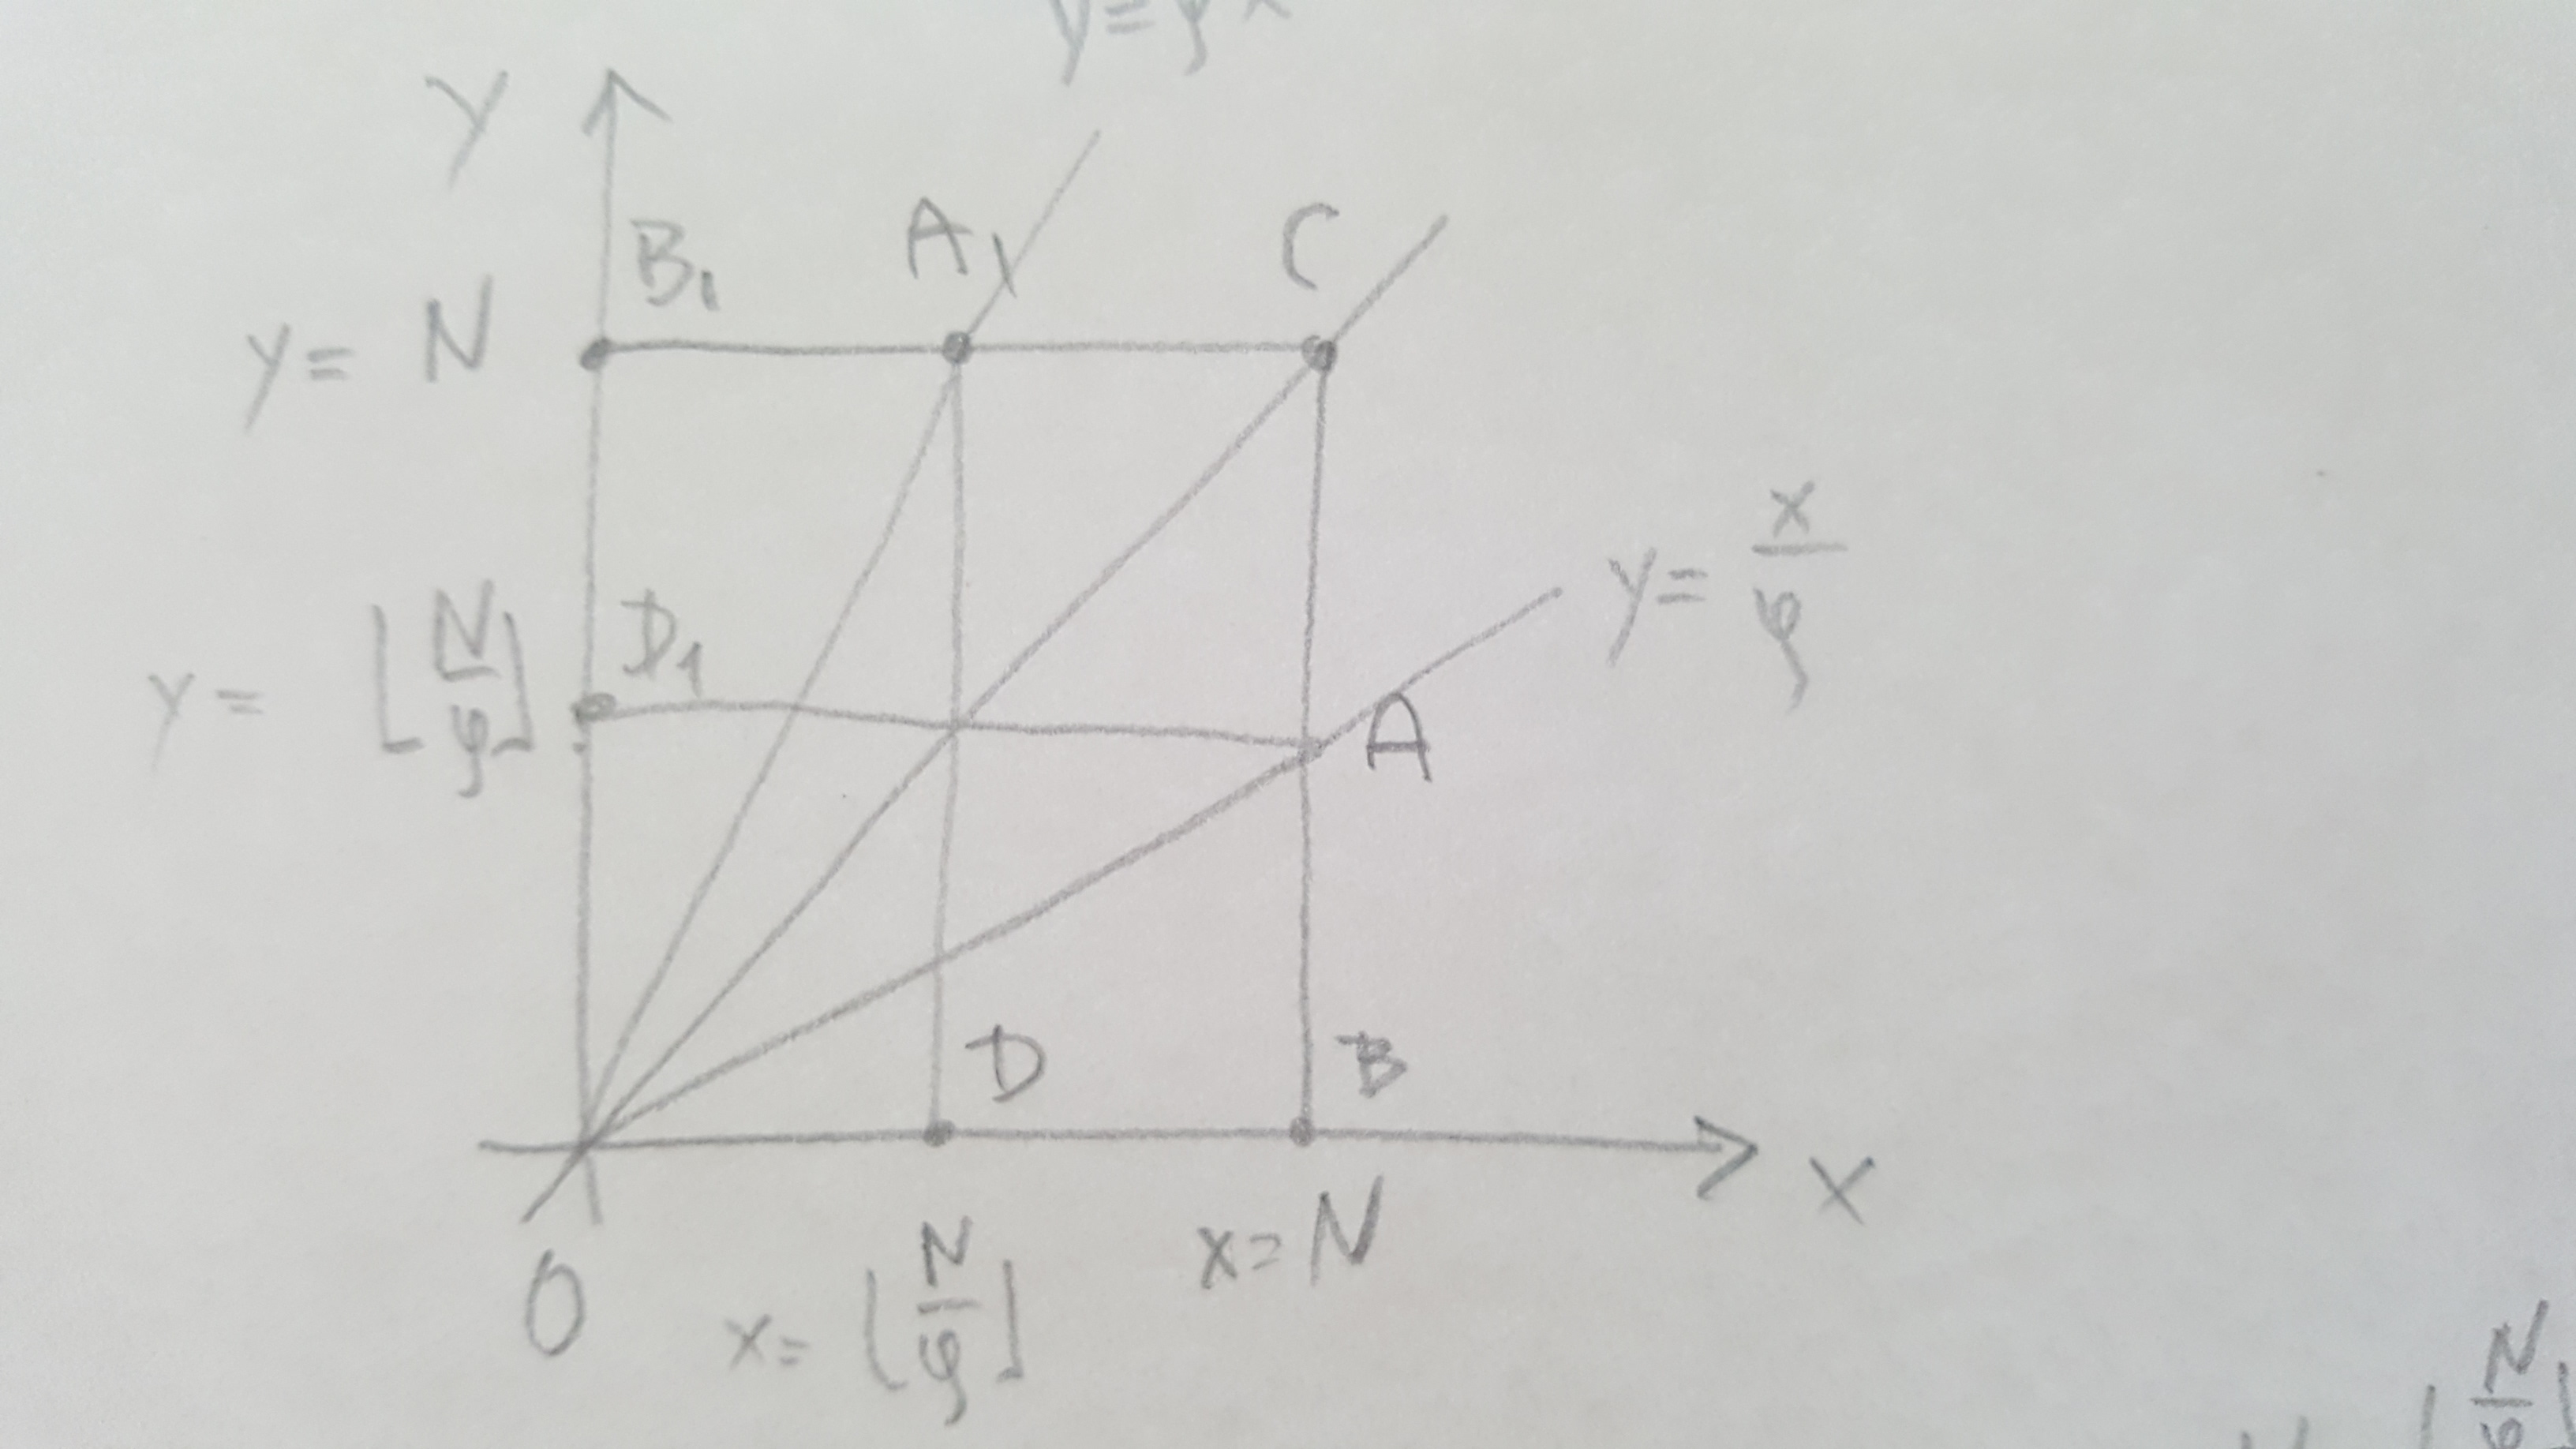 y = φx
y
B₁ A₁ C
y = N
y = x/φ
D₁
y = ⌊N/φ⌋
A
D B
x
O x = ⌊N/φ⌋ x = N
⌊N/φ⌋